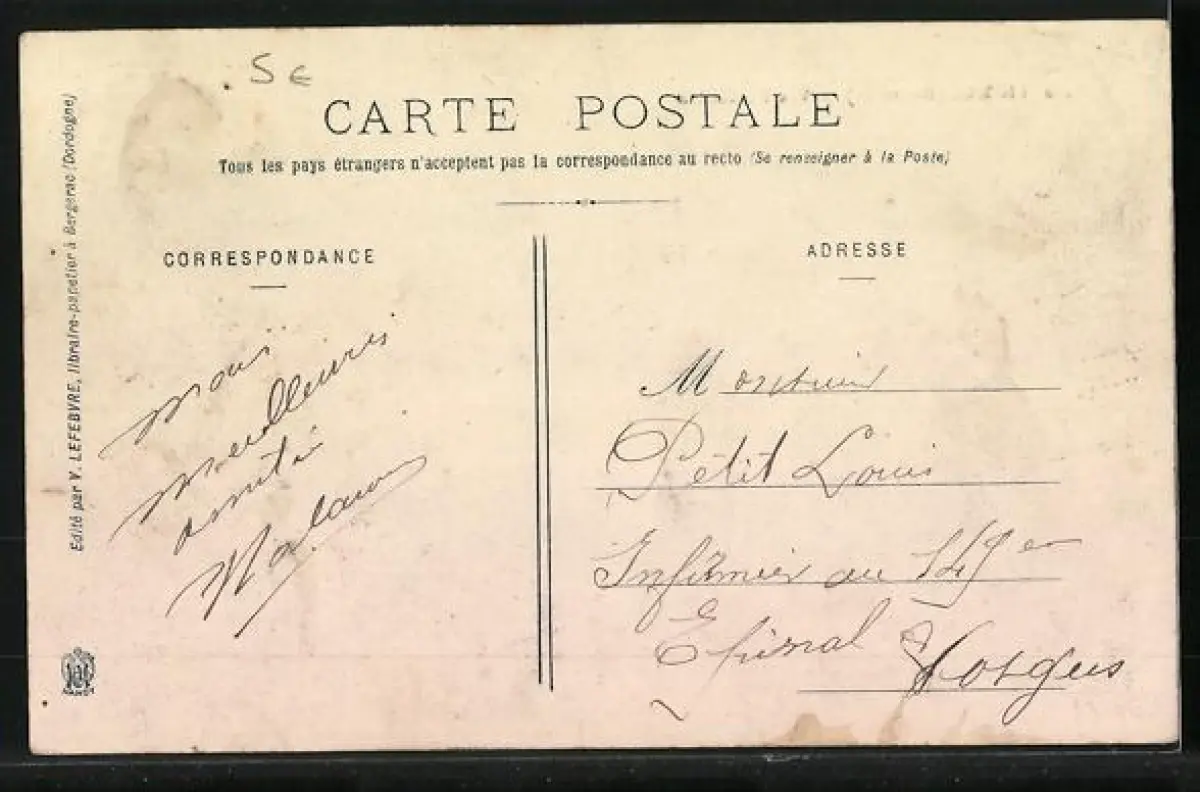 5 €
CARTE POSTALE
Tous les pays étrangers n'acceptent pas la correspondance au recto (Se renseigner à la Poste)
Edité par V. LEFEBVRE, libraire-papetier à Bergerac (Dordogne)
CORRESPONDANCE
meilleures
amitié
ADRESSE
Monsieur
Petit Louis
Infirmier au 149e
Epinal
Vosges